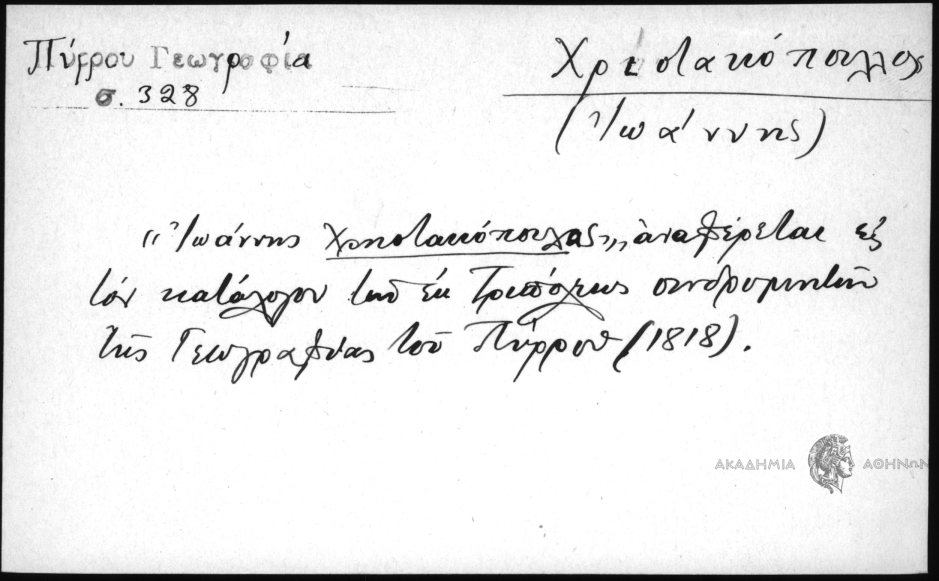 Πύρρου Γεωγραφία
σ. 328
Χρηστακόπουλος
(Ἰωάννης)
"Ἰωάννης Χρηστακόπουλος" ἀναφέρεται εἰς
τὸν κατάλογον τῶν ἐκ Τριπόλεως συνδρομητῶν
τῆς Γεωγραφίας τοῦ Πύρρου (1818).
ΑΚΑΔΗΜΙΑ ΑΘΗΝΩΝ